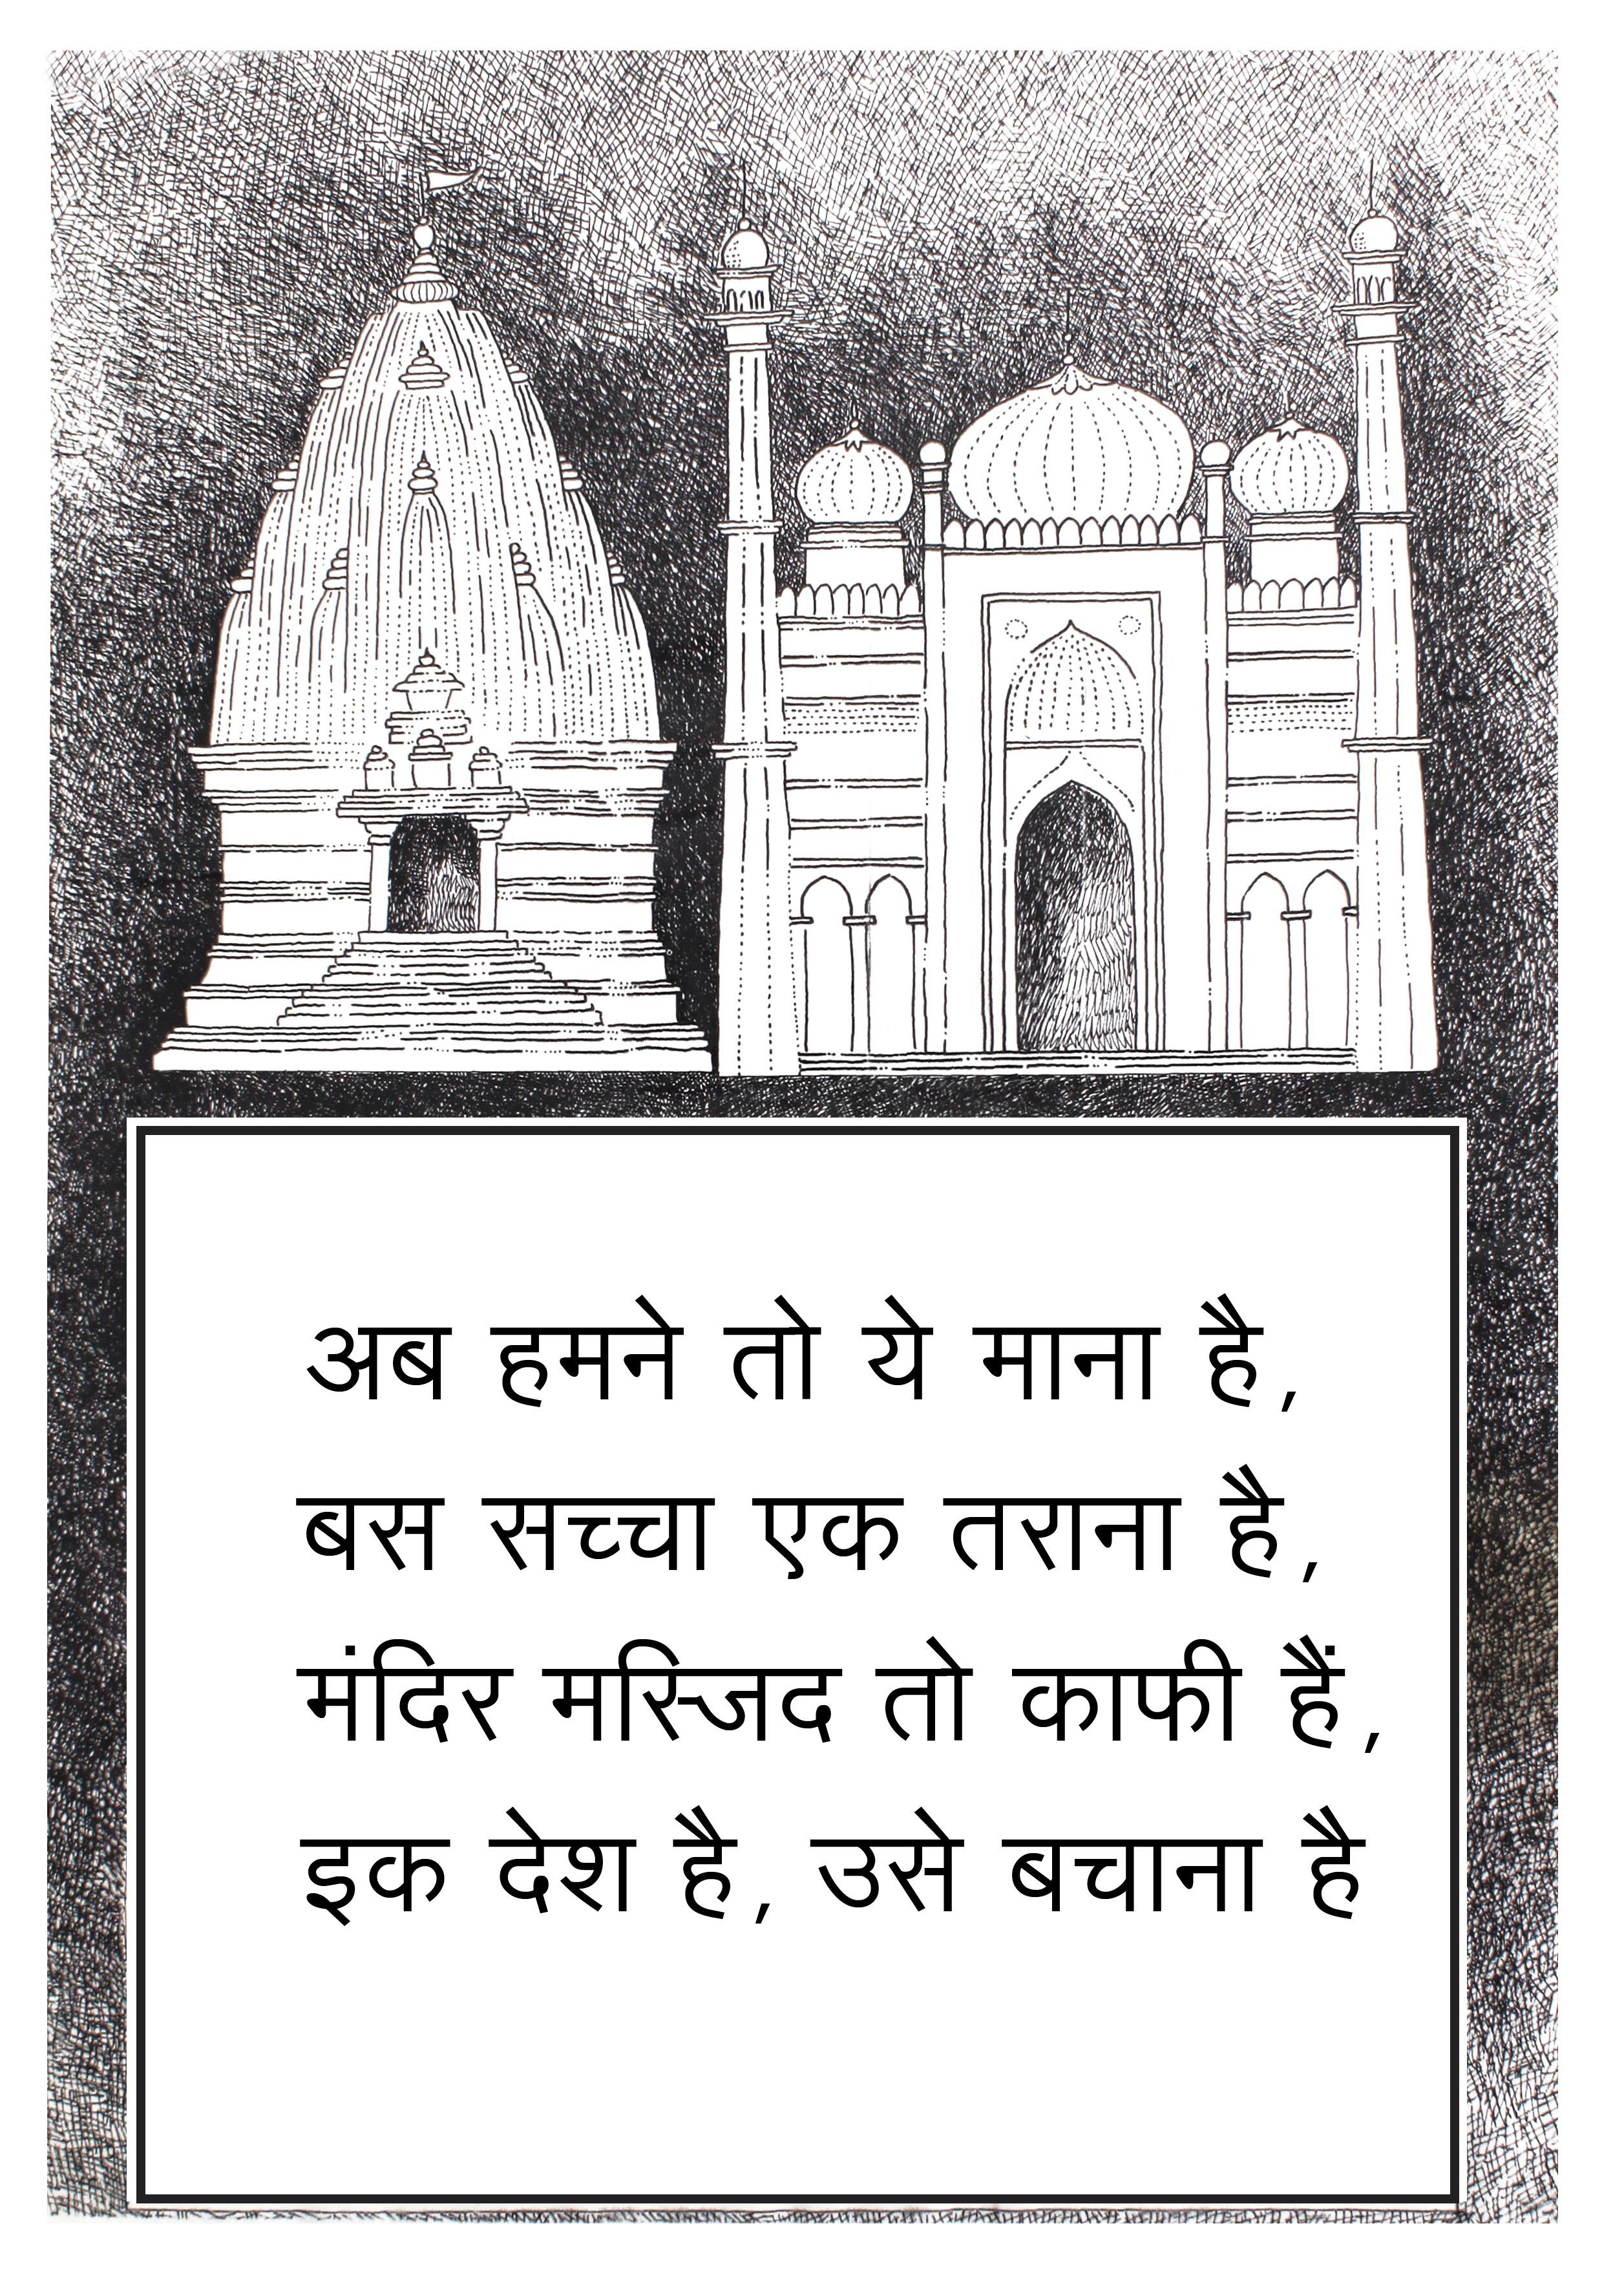 अब हमने तो ये माना है,
बस सच्चा एक तराना है,
मंदिर मस्जिद तो काफी हैं,
इक देश है, उसे बचाना है